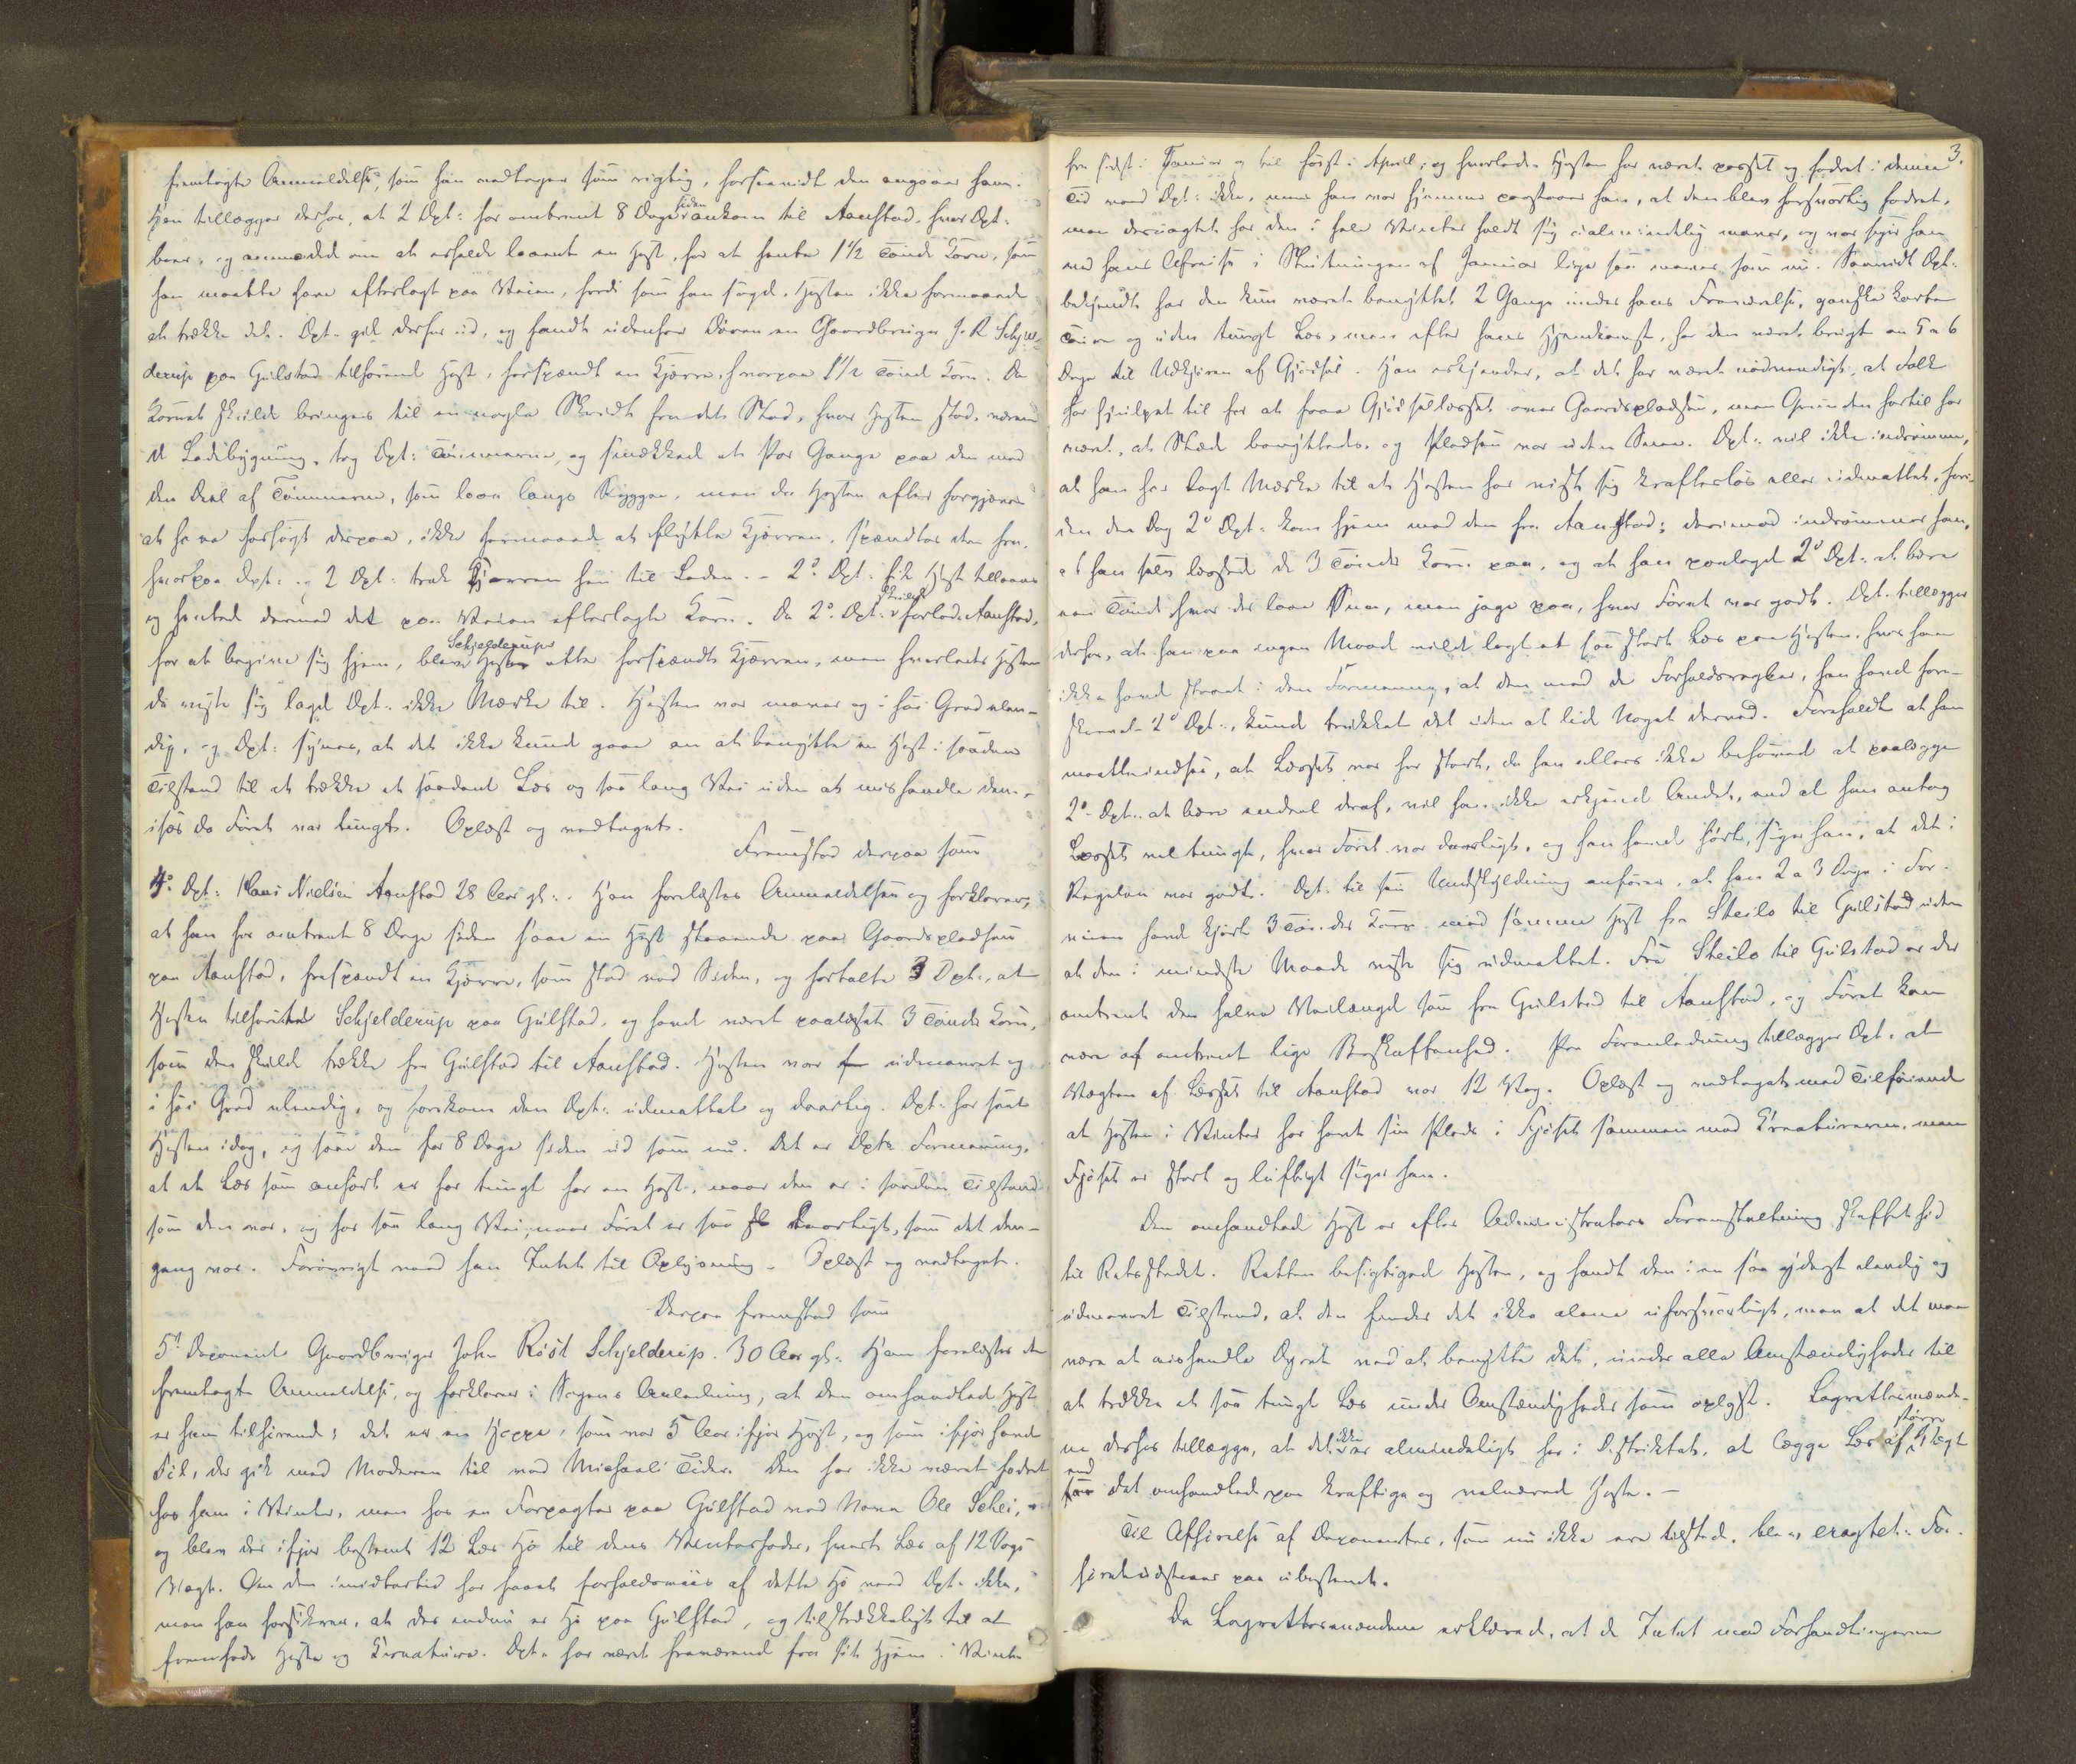 fremlagte Anmeldelse, som han vedtager som rigtig, forsaavidt den angaaer ham.
Han tillægger derhos, at 2 Dpt: for omtrent 8 Dage siden ankom til Aanstad, hvor Dpt:
boer, og anmodede om at erholde laant en Hest, for at hente 1 1/2 Tønde Korn, som
han maatte have efterlagt paa Veien, fordi som han sagde, Hesten ikke formaaede
at trække det. Dpt: gik derfor ud, og fandt udenfor Døren en Gaardbruger J. R. Schjel-
derup paa Gulstad tilhørende Hest, forspændt en Kjærre, hvorpaa 1 1/2 Tønde Korn. Da
Kornet skulde bringes til en nogle Skridt fra det Sted, hvor Hesten stod, værende
Ladebygning, tog Dpt: Tømmerne, og smækkede et Par Gange paa den med
den Deel af Tømmerne, som laae langs Ryggen, men da Hesten efter forgjæves
at have forsøgt derpaa, ikke formaaede at flytte Kjærren, spændtes den fra,
hvorpaa Dpt: og 2 Dpt: trak Kjærren hen til Laden. - 2d Dpt: fik Hest tillaans
og hentede dermed det paa Veien efterlagte Korn. Da 2d Dpt: skulde forlade Aanstad,
for at begive sig hjem, blev Schjelderups Hest atter forspændt Kjærren, men hvorledes Hesten
da viste sig lagde Dpt: ikke Mærke til. Hesten var mager og i høi Grad elen-
dig, og Dpt: synes, at det ikke kunde gaae an at benytte en Hest i saadan
Tilstand til at trække et saadant Læs og saa lang Vei uden at mishandle den,
især da Føret var tungt. Oplæst og vedtaget.
Fremstod derpaa som
4de Dpt: Hans Nielsen Aanstad 28 Aar gl: Han forelæstes Anmeldelsen og forklarer,
at han for omtrent 8 Dage siden saae en Hest staaende paa Gaardspladsen
paa Aanstad, fraspændt en Kjærre, som stod ved Siden, og fortalte 3 Dpt:, at
Hesten tilhørte Schjelderup paa Gulstad, og havde været paalæsset 3 Tønder Korn,
som den skulde trække fra Gulstad til Aanstad. Hesten var udmagret og
i høi Grad elendig, og forekom den Dpt: udmattet og daarlig. Dpt: har seet
Hesten idag, og saae den for 8 Dage siden ud som nu. Det er Dpts Formening,
at et Læs som anført er for tungt for en Hest, naar den er i saadan Tilstand
som den var, og for saa lang Vei, naar Føret er saa daarligt, som det den-
gang var. Forøvrigt veed han Intet til Oplysning. Oplæst og vedtaget.
Derpaa fremstod som
5te Deponent Gaardbruger John Röst Schjelderup 30 Aar gl: Ham forelæstes den
fremlagte Anmeldelse, og forklarer i Sagens Anledning, at den omhandlede Hest
er ham tilhørende; det er en Hoppe, som var 5 Aar ifjor Høst, og som ifjor havde
Føl, der gik med Moderen til ved Michaeli Tider. Den har ikke været fodret
hos ham i Vinter, men hos en Forpagter paa Gulstad ved Navn Ole Schei,
og blev der ifjor bestemt 12 Læs Hø til dens Vinterfoder, hvert Læs af 12 Vogs
Vægt. Om den imidlertid har faaet forholdsviis af dette Hø veed Dpt: ikke,
men han forsikrer, at der endnu er Hø paa Gulstad, og tilstrækkeligt til at
fremføde Heste og Kreaturer. Dpt: har været fraværende fra sit Hjem i Vinter

3.
fra sidst i Januar og til først i April, og hvorledes Hesten har været passet og fodret i denne
Tid veed Dpt: ikke, men han var hjemme paastaaer han, at den blev forsvarlig fodret,
men desuagtet har den i hele Vinter holdt sig ualmindelig mager, og var siger han
ved hans Afreise i Slutningen af Januar lige saa mager som nu. Saavidt Dpt:
bekjendt har den kun været benyttet 2 Gange under hans Fraværelse, ganske korte
Ture og uden tungt Læs, men efter hans Hjemkomst, har den været brugt en 5 a 6
Dage til Udkjøren af Gjødsel. Han erkjender, at det har været nødvendigt, at Folk
har hjulpet til for at faae Gjødsellæsset over Gaardspladsen, men Grunden hertil har
været, at Slæde benyttedes, og Pladsen var uden Snee. Dpt: vil ikke indrømme,
at han har lagt Mærke til at Hesten har viist sig kraftesløs eller udmattet, før-
den den Dag 2d Dpt: kom hjem med den fra Aanstad; derimod indrømmer han,
at han selv læssede de 3 Tønder Korn paa, og at han paalagde 2d Dpt: at bære
een Tønde hvor der laae Snee, men jage paa, hvor Føret var godt. Dpt: tillægger
derhos, at han paa ingen Maade vilde lagt et saa stort Læs paa Hesten, hvis han
ikke havde staaet i den Formening, at den med de Forholdsregler, han havde fore-
skrevet 2d Dpt:, kunde trukket det uden at lide Noget derved. Foreholdt at han
maatte indsee, at Læsset var for stort, da han ellers ikke behøvede at paalægge
2d Dpt: at bære endeel deraf, vil han ikke erkjende Andet, end at han antog
Læsset vel tungt, hvor Føret var daarligt, og han havde hørt, siger han, at det i
Regelen var godt. Dpt: til sin Undskyldning anfører, at han 2 a 3 Dage i For-
veien havde kjørt 3 Tønder Korn med samme Hest fra Steilo til Gulstad uden
at den i mindste Maade viste sig udmattet. Fra Steilo til Gulstad er der
omtrent den halve Veilængde som fra Gulstad til Aanstad, og Føret kan
være af omtrent lige Beskaffenhed. Paa Foranledning tillægger Dpt:, at
Vægten af Læsset til Aanstad var 12 Vog. Oplæst og vedtaget med Tilføiende
at Hesten i Vinter har havt sin Plads i Fjøset sammen med Kreaturerne, men
Fjøset er stort og luftigt siger han.
Den omhandlede Hest er efter Administrators Foranstaltning skaffet hid
til Retsstedet. Retten besigtigede Hesten, og fandt den i en saa yderst elendig og
udmagret Tilstand, at den finder det ikke alene uforsvarligt, men at det maa
være at mishandle Dyret ved at benytte det, under alle Omstændigheder til
at trække et saa tungt Læs under Omstændigheder som oplyst. Lagrettesmænde-
ne derhos tillægge, at det ikke er almindeligt her i Distriktet, at lægge Læs af større Vægt
end det omhandlede paa kraftige og velnærede Heste. -
Til Afhørelse af Deponenter, som nu ikke ere tilstede, blev eragtet: For-
høret udstaaer paa ubestemt.
Da Lagrettesmændene erklærede, at de Intet mod Forhandlingerne